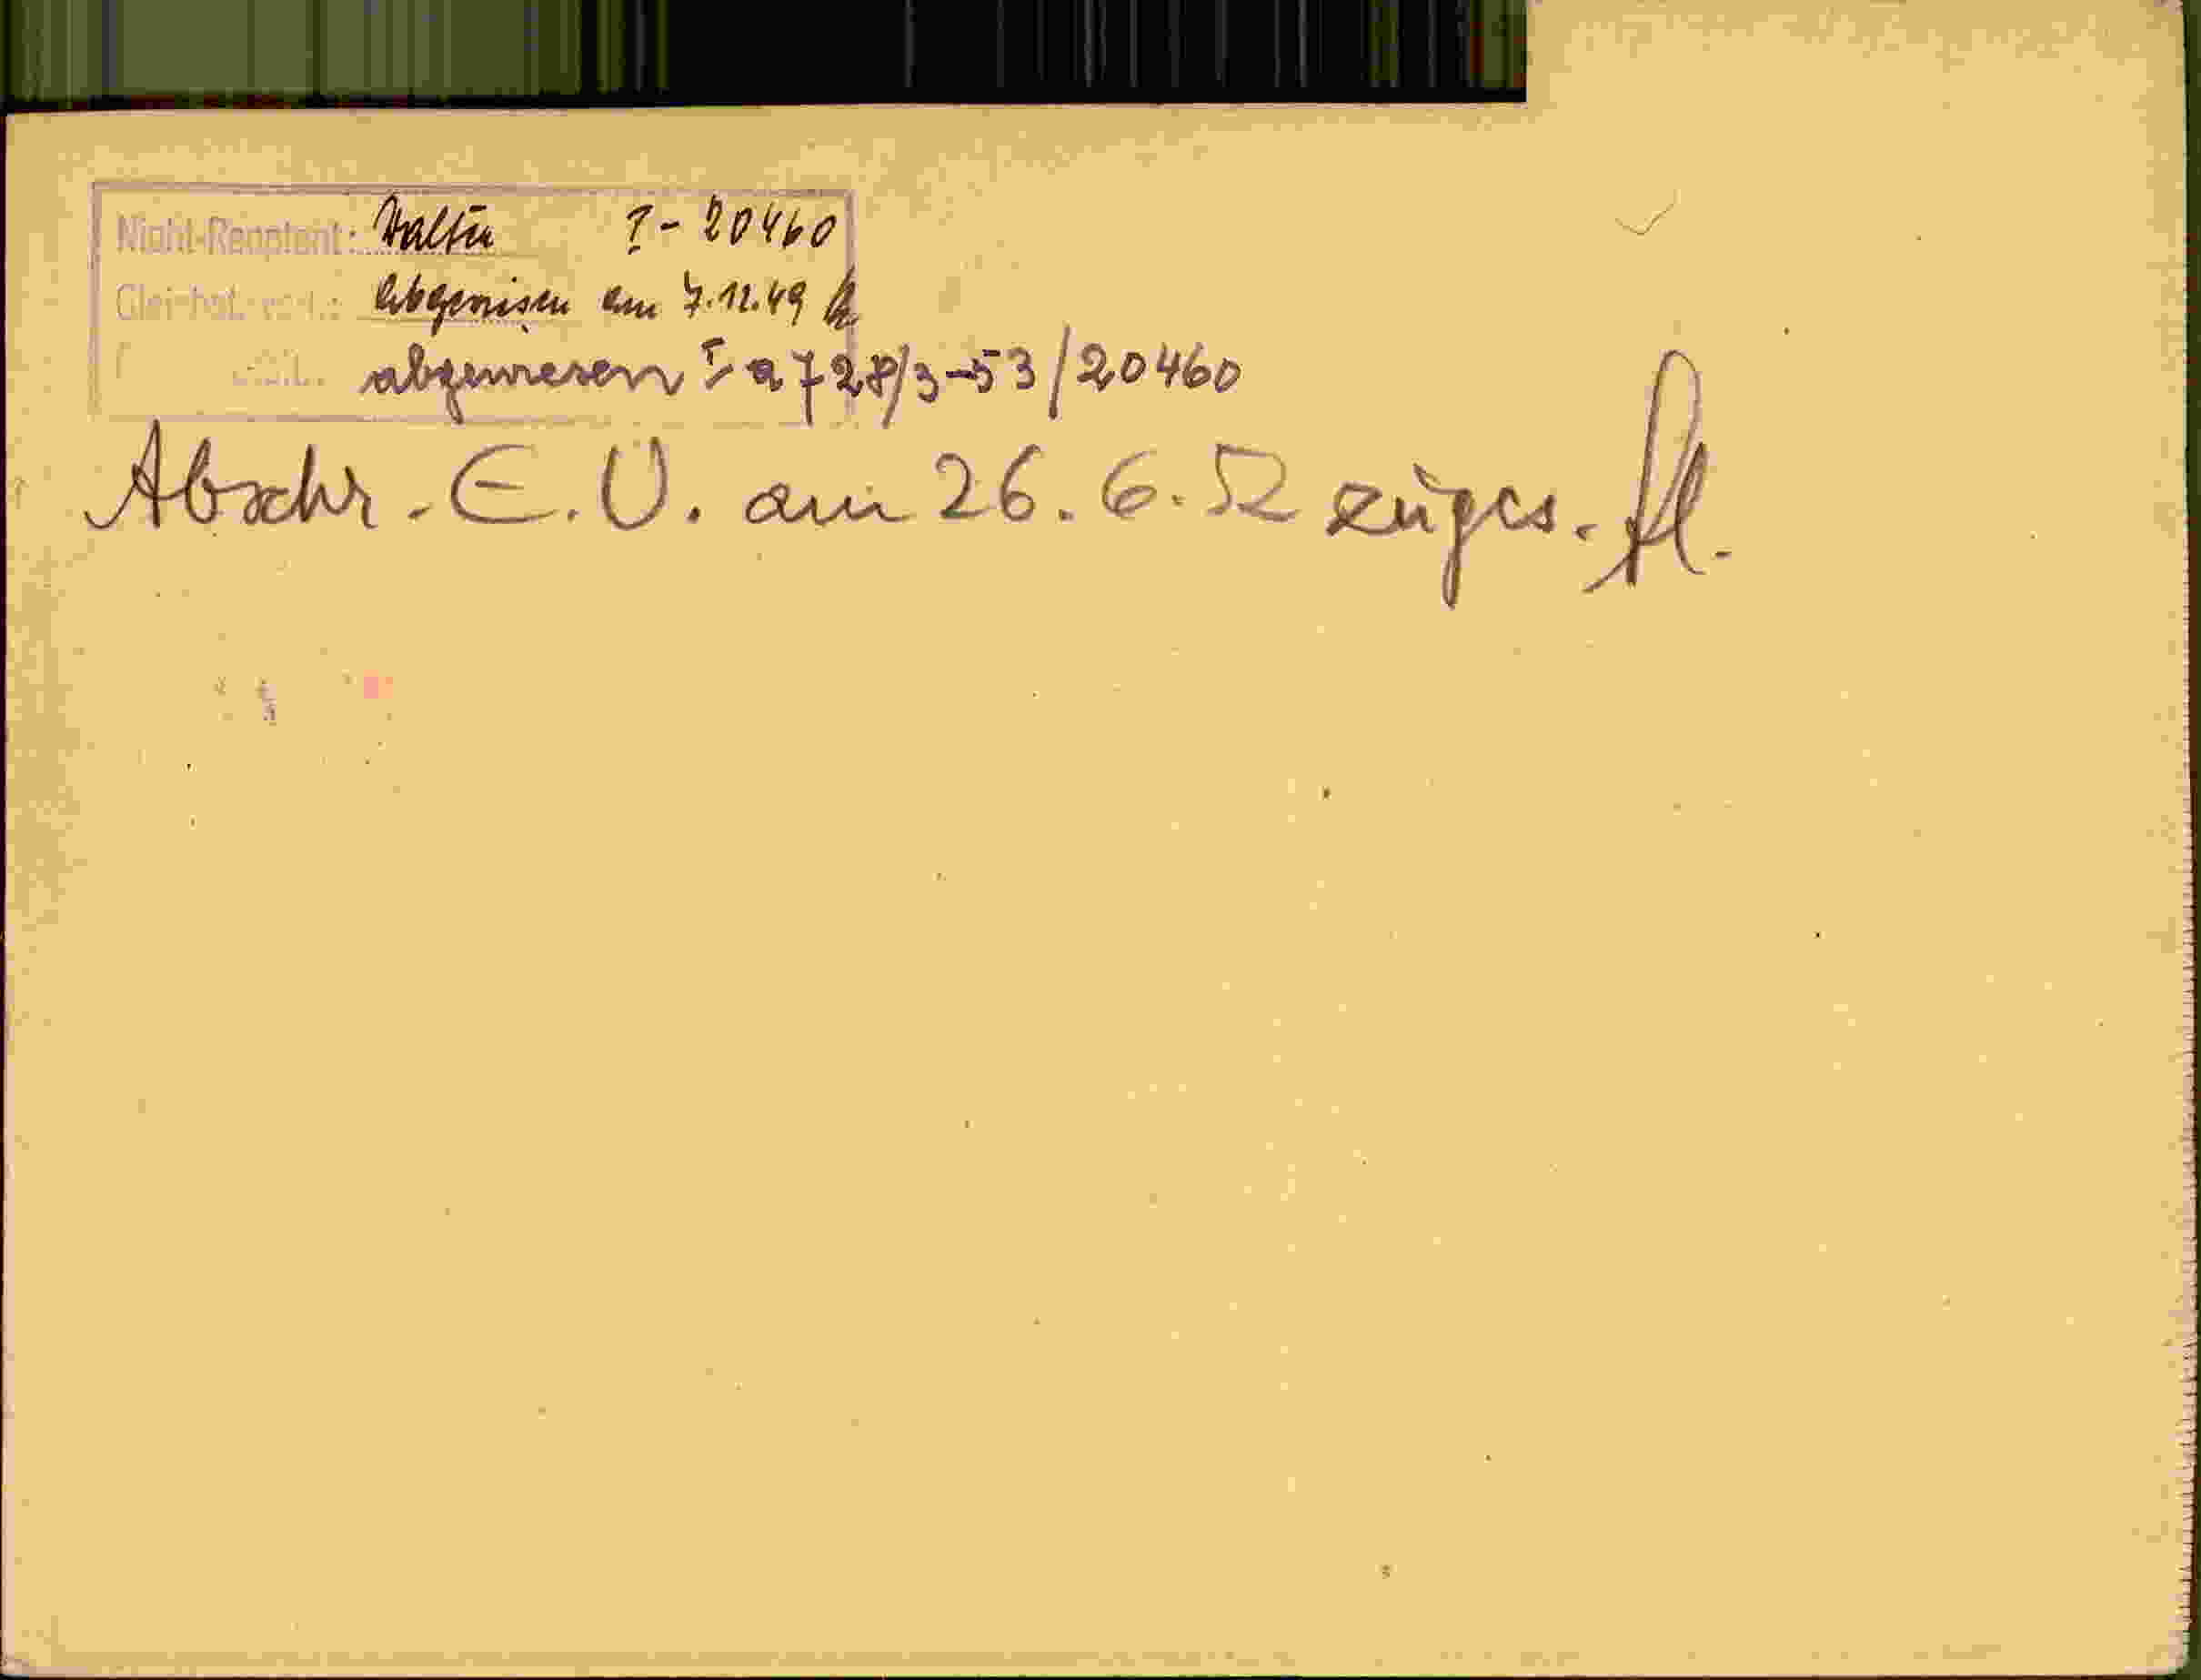 Nicht-Reoptant: Walter I - 20460
abgewiesen am 7.11.49
abgewiesen I-a 728/3-53/20460
Abschr. E.U. am 26.6.52 zuges. Al.